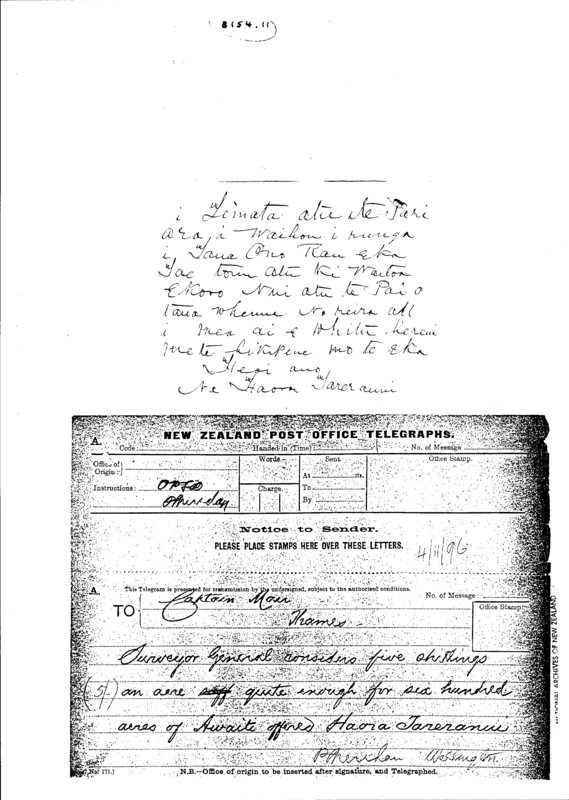 8(54.11)
i Timata atu ite Pari
ara, i Waihou i runga
i, Taua Ono Rau eka
Tae tonu atu ki Waitoa
E Koro Nui atu te Pai o
taua whenua No reira au
i mea ai e Whitu hereni
me te hikipene mo te eka
Heoi ano
Na Haora Tareranui
NEW ZEALAND POST OFFICE TELEGRAPHS.
A.
Code:
Handed in (Time)
No. of Message
Office of Origin:
Words.
Sent
Office Stamp.
At m.
Instructions:
Charge.
To
By
Notice to Sender.
PLEASE PLACE STAMPS HERE OVER THESE LETTERS.
4/11/96
A.
This Telegram is presented for transmission by the undersigned, subject to the authorised conditions.
No. of Message:
TO
Captain Mair
Thames
Office Stamp
Surveyor General considers five shillings
(5/-) an acre quite enough for six hundred
acres of Awaiti offered Haora Tareranui
P Sheridan Wellington
No. 171.]
N.B.—Office of origin to be inserted after signature, and Telegraphed.
NATIONAL ARCHIVES OF NEW ZEALAND